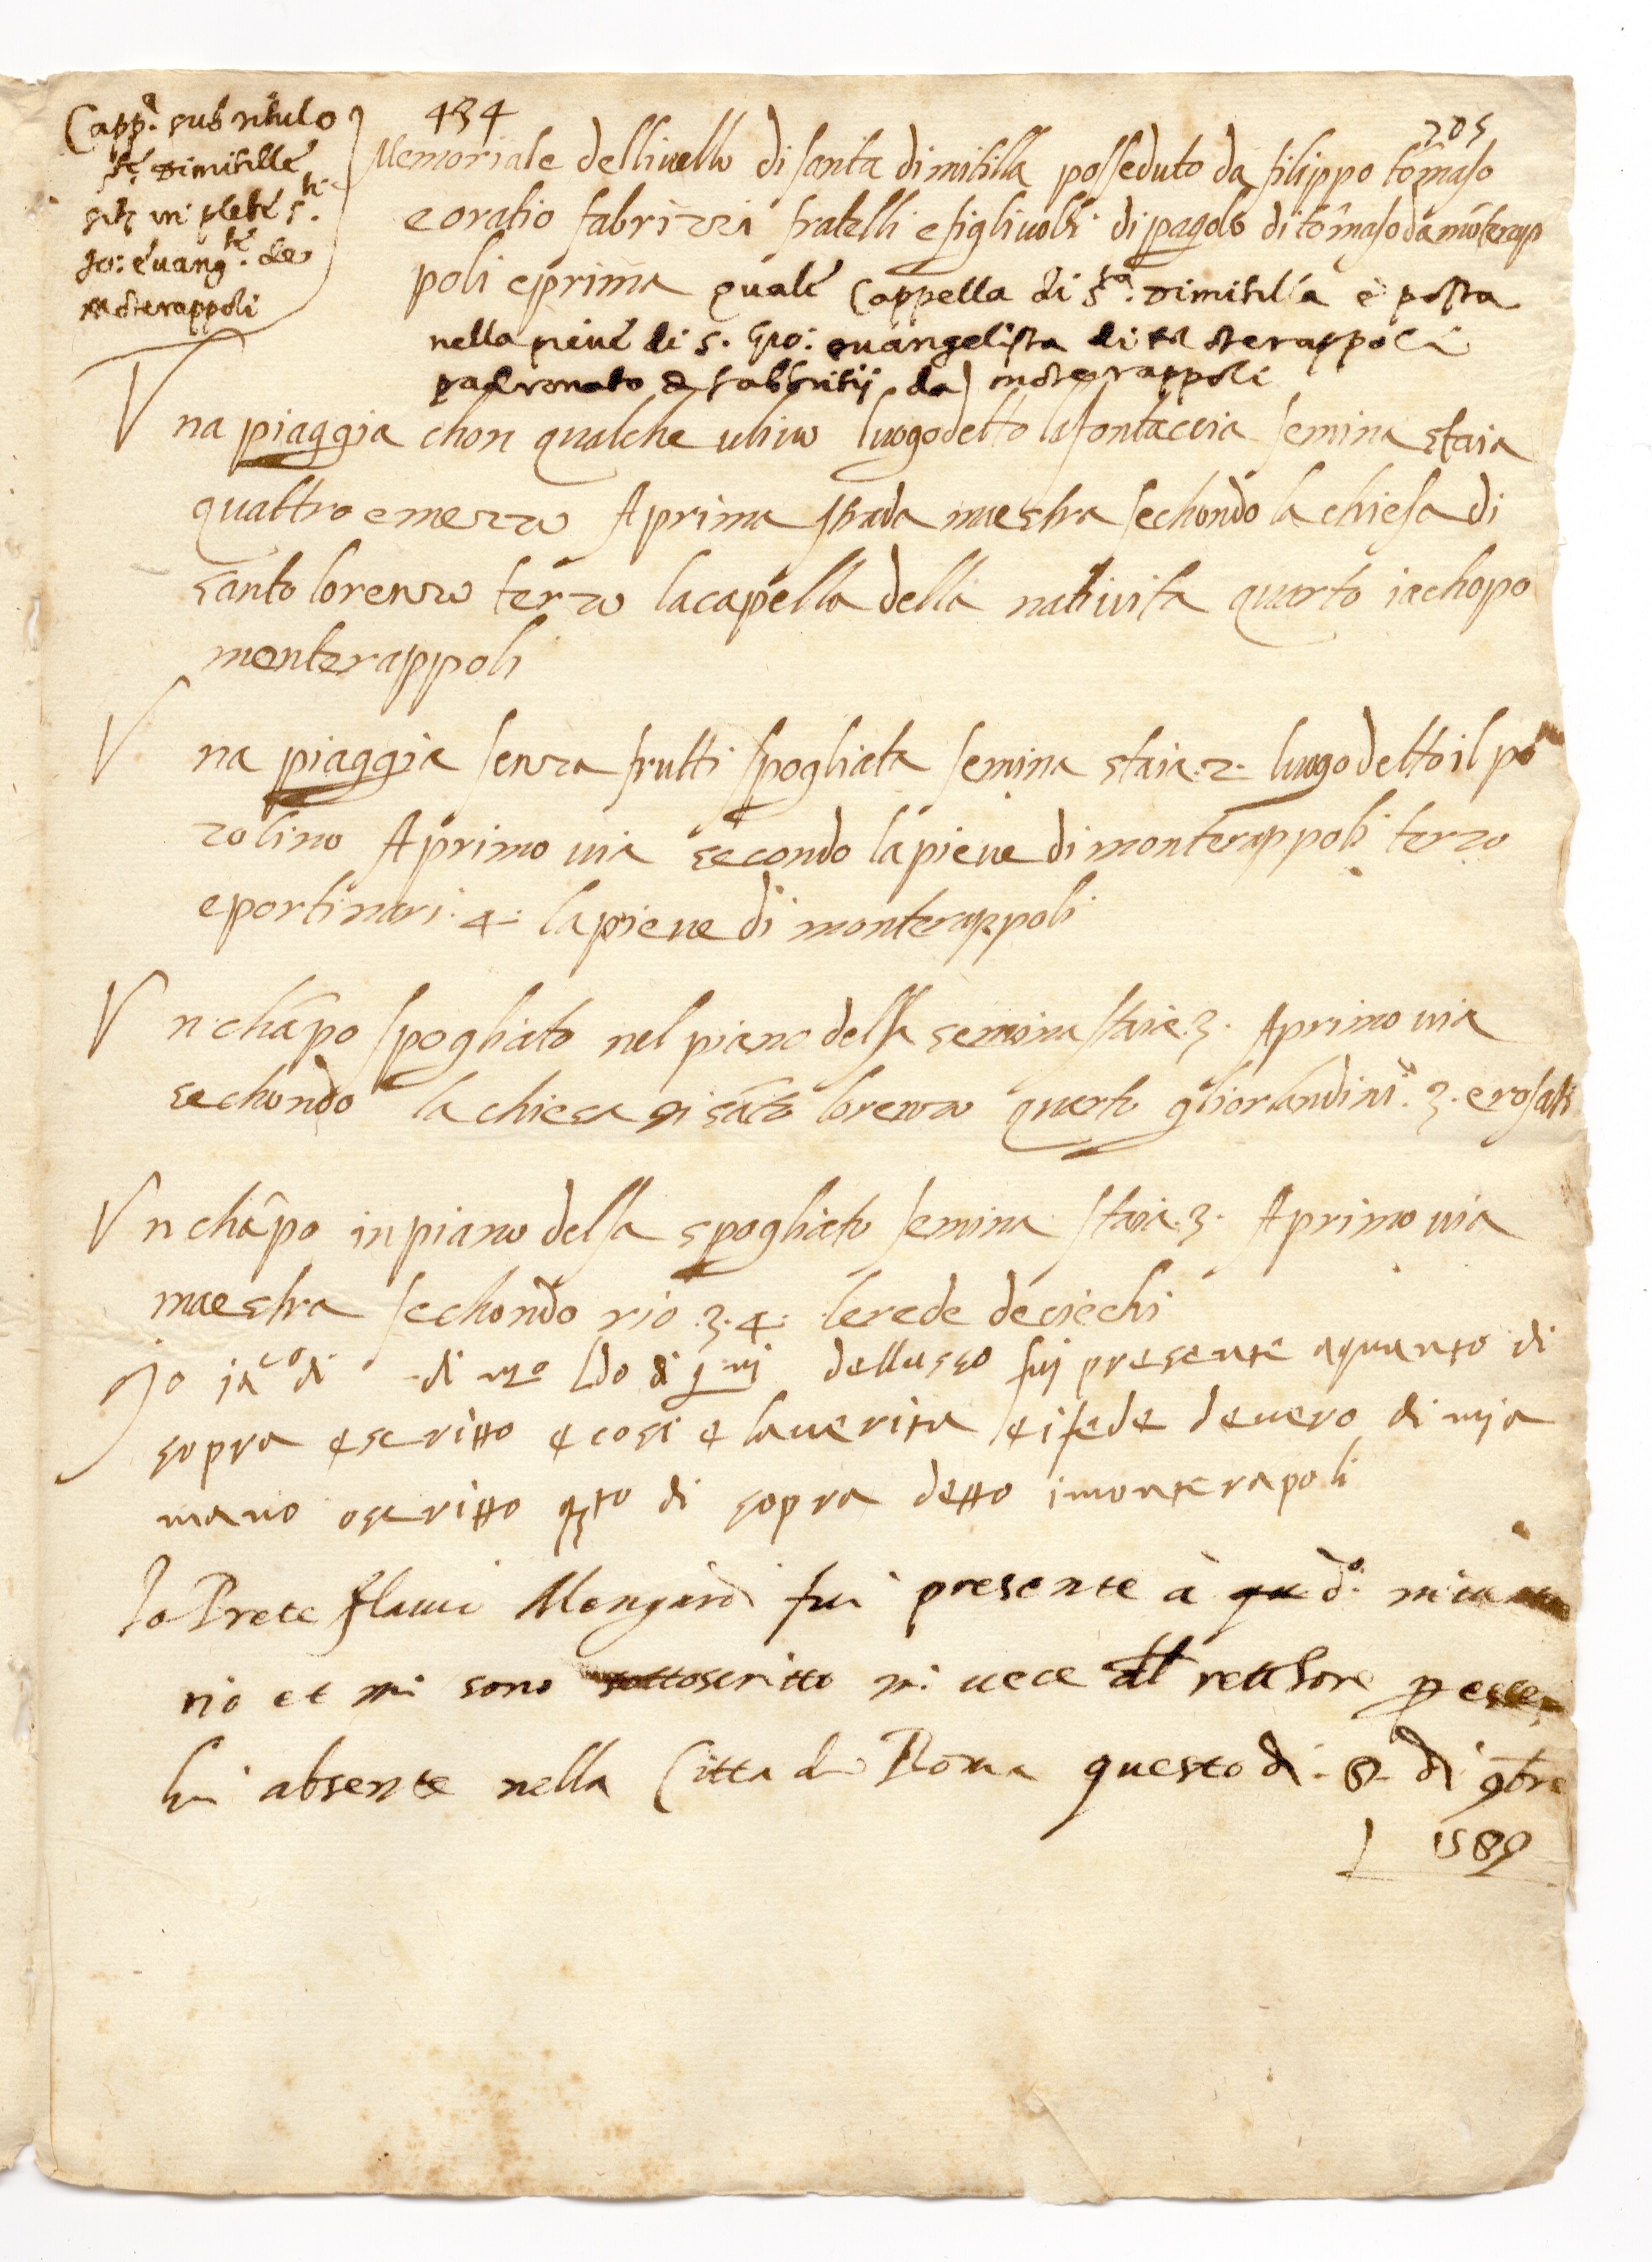 434
205
Capp.a sub titulo
S.te Dimitille
sita in plebe S.ti
Jo: evang.te de
Mōterappoli
Memoriale dellivello di santa dimitilla posseduto da filippo tōmaso
e oratio fabrizzi fratelli e figliuolli di pagolo di tōmaso da mōterap
poli e prima quale Cappella di S.ta Dimitilla è posta
nella pieve di S. Gio: evangelista di Mōterappoli
padronato de fabbritij da mōterappoli
Una piaggia chon qualche ulivo luogo detto la fontaccia semina staia
quattro e mezzo A prima strada maestra sechondo la chiesa di
santo lorenzo terzo la capella della nativita quarto iachopo
monterappoli
Una piaggia senza frutti spogliata semina staia .2. luogo detto il po
zolino A primo via secondo la pieve di monterappoli terzo
e portinari .4. la pieve di monterappoli
Un chāpo spogliato nel piano delsa semina staia .3. A primo via
sechondo la chiesa di sāto lorenzo quarto gliorlandini .3. e rosati
Un chāpo in piano delsa spogliato semina staia .3. A primo via
maestra sechondo rio .3.4. lerede de ciechi
Jo ja.co di di m.o Ldo di dellusso fuj presente aquanto di
sopra escritto ecosi e laverita e i fede devero di mja
mano o scritto q.to di sopra detto i monterapoli
Io Prete flavi Mengardi fui presente à qu d.o
rio et mi sono sottoscritto in vece del rettore p esser
lui absente nella Citta di Roma questo di .8. di 9bre
1589